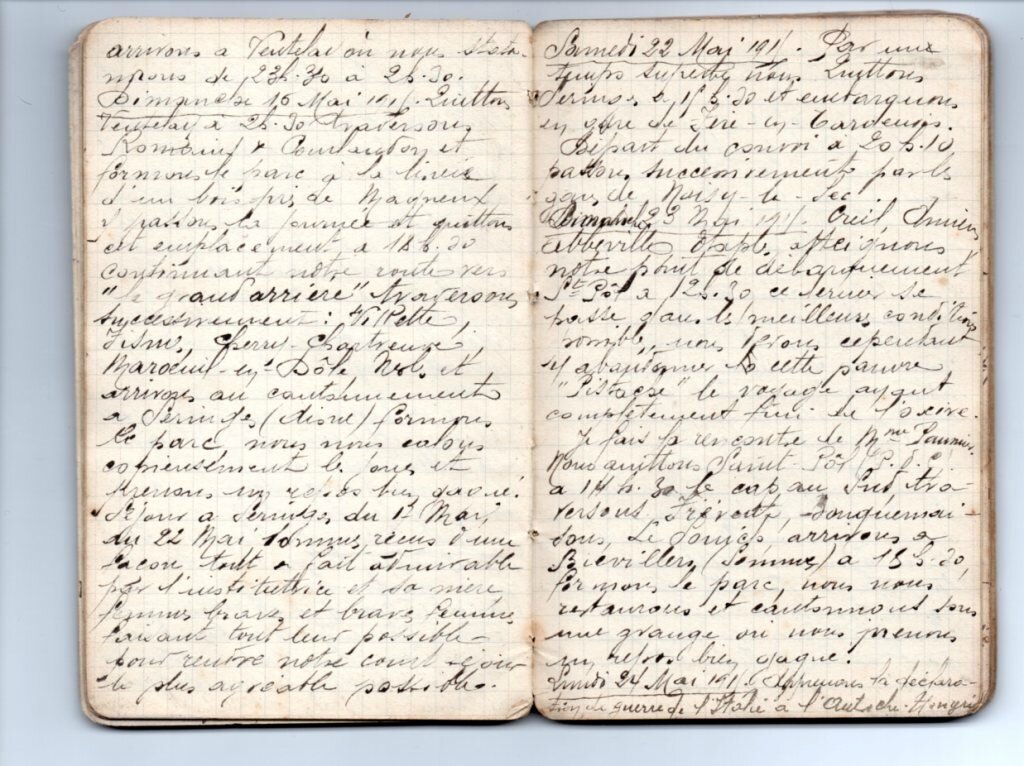 arrivons a Ventelay où nous sta-
nnons de 23h.30 à 2h.30.
Dimanche 16 Mai 1915. Quittons
Ventelay à 2h.30 traversons
Romain & Courlandon et
formons le parc à la lisière
d'un bois près de Magneux
y passons la journée et quittons
cet emplacement à 18h.30
continuant notre route vers
"le grand arrière" traversons
successivement : Villette,
Fismes, Chery-Chartreuve,
Mareuil-en-Dôle, Nesles et
arrivons au cantonnement
a Seringes (Aisne) formons
le parc, nous nous calons
copieusement les joues et
prenons un repos bien gagné.
Séjour a Seringes du 17 Mai,
au 22 Mai sommes recus d'une
facon tout a fait admirable
par l'institutrice et sa mère
femmes braves et braves femmes
faisant tout leur possible
pour rendre notre court séjour
le plus agréable possible.
Samedi 22 Mai 191. Par un
temps superbe nous Quittons
Seringes à 15h.30 et embarquons
en gare de Fère-en-Tardenois.
Départ du convoi à 20h.10
passons successivement par les
gares de Noisy-le-Sec
Dimanche 23 Mai 1915. Creil, Amiens
Abbeville, Etaples, atteignons
notre point de débarquement
St Pôl à 12h.30 ce dernier se
passe dans les meilleures conditions
possibles, nous devons cependant
y abandonner ce cette pauvre
"Pistache" le voyage ayant
complètement fini de l'
Je fais la rencontre de Mme
Nous quittons Saint-Pôl (P.d.C.)
a 14h.30 le cap au Sud tra-
versons Frévent, Bouquemai
son, Le Souich arrivons a
(Somme) a 18h.30,
formons le parc, nous nous
restaurons et cantonnons sous
une grange où nous prenons
un repos bien gagné.
Lundi 24 Mai 191. Apprenons la déclara-
tion de guerre de l'Italie à l'Autriche-Hongrie